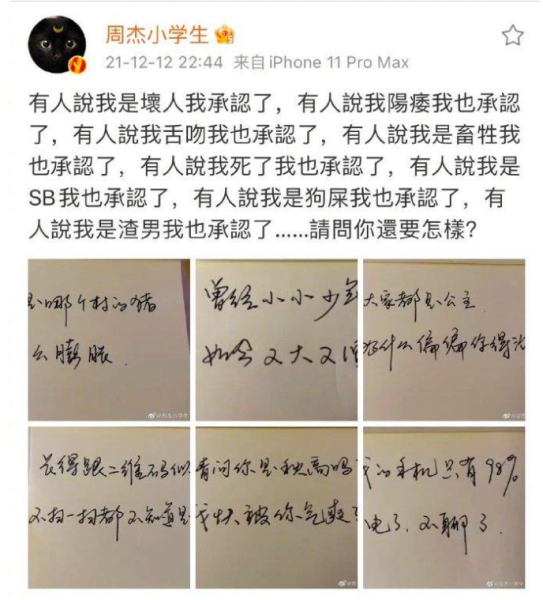 周杰小学生
21-12-12 22:44 来自 iPhone 11 Pro Max
有人說我是壞人我承認了，有人說我陽痿我也承認
了，有人說我舌吻我也承認了，有人說我是畜牲我
也承認了，有人說我死了我也承認了，有人說我是
SB我也承認了，有人說我是狗屎我也承認了，有
人說我是渣男我也承認了......請問你還要怎樣?
是哪个村的猪
么膨胀
曾经小小少年
如今又大又
大家都是公主
为什么偏偏你得
长得跟二维码似
不扫一扫都不知道是
请问你是秋高吗
我快被你气爽了
我的手机只有98%
电了，不聊了